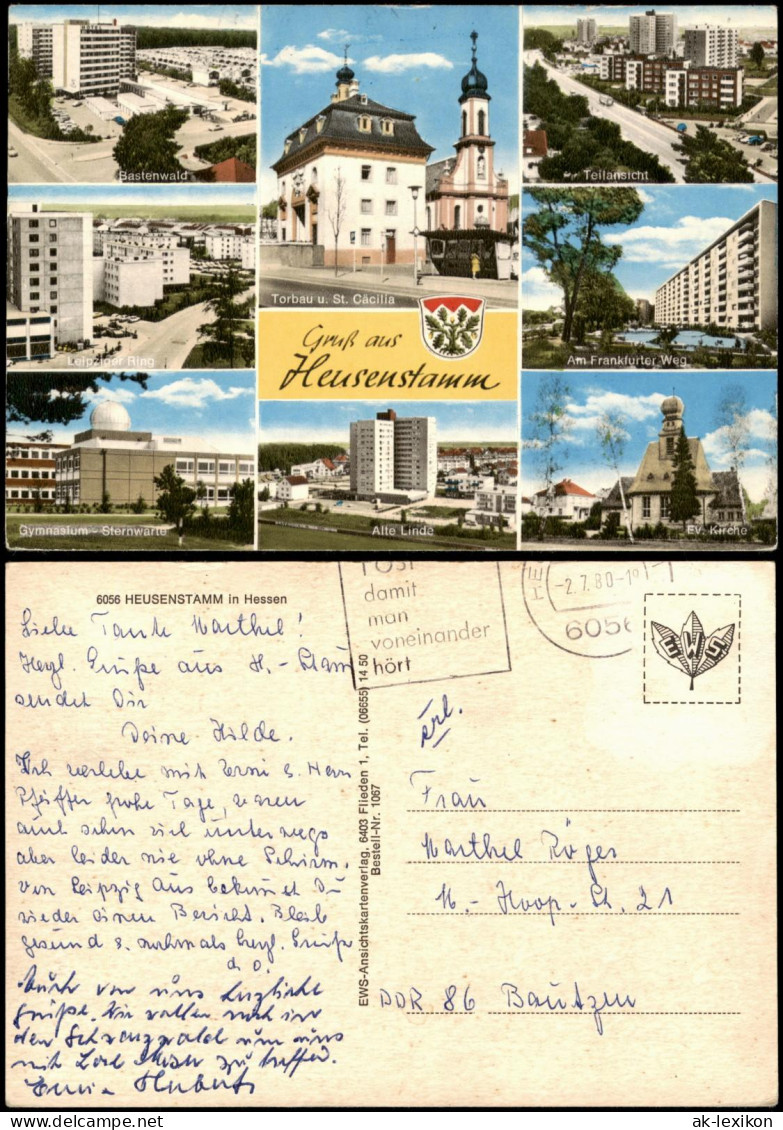 Bastenwald
Torbau u. St. Cäcilia
Teilansicht
Leipziger Ring
Gruß aus
Heusenstamm
Am Frankfurter Weg
Gymnasium - Sternwarte
Alte Linde
Ev. Kirche
6056 HEUSENSTAMM in Hessen
damit
man
voneinander
hört
-2.7.80-1
6056
EWS
Liebe Tante Marthel!
Herzl. Grüße aus H.-Stamm
sendet Dir
Deine Hilde.
Ich verlebe mit Erni u. Herrn
Pfeiffer frohe Tage, waren
auch schon viel unterwegs
aber leider nie ohne Schirm.
Von Leipzig aus bekommst Du
wieder einen Bericht. Bleib
gesund u. nochmals herzl. Grüße
d. O.
Auch von uns herzliche
Grüße. Wir wollen uns in
den Schwarzwald um uns
mit zu treffen.
Erni u. Hubert
EWS-Ansichtskartenverlag, 6403 Flieden 1, Tel. (06655) 14 50
Bestell-Nr. 1067
erl.
Frau
Marthel Röges
M.-Hoop-Str. 21
DDR 86 Bautzen
ak-lexikon